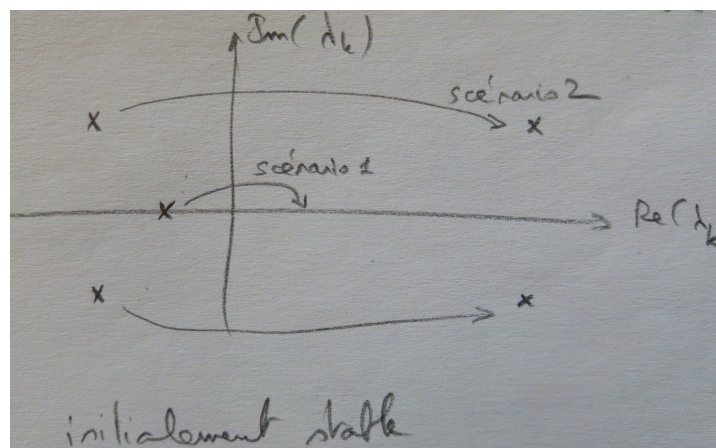 Im(λk)
scénario 2
scénario 1
Re(λk
initialement stable